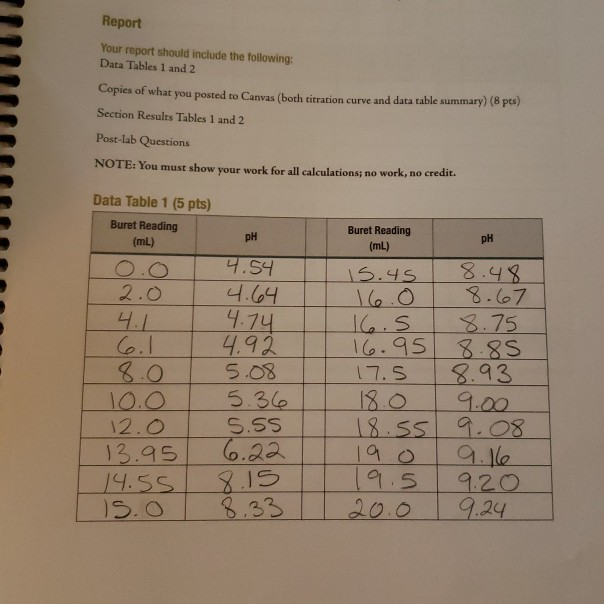 Report
Your report should include the following:
Data Tables 1 and 2
Copies of what you posted to Canvas (both titration curve and data table summary) (8 pts)
Section Results Tables 1 and 2
Post-lab Questions
NOTE: You must show your work for all calculations; no work, no credit.
Data Table 1 (5 pts)
Buret Reading (mL) pH Buret Reading (mL) pH
0.0 4.54 15.45 8.48
2.0 4.64 16.0 8.67
4.1 4.74 16.5 8.75
6.1 4.92 16.95 8.85
8.0 5.08 17.5 8.93
10.0 5.36 18.0 9.00
12.0 5.55 18.55 9.08
13.95 6.22 19.0 9.16
14.55 8.15 19.5 9.20
15.0 8.33 20.0 9.24